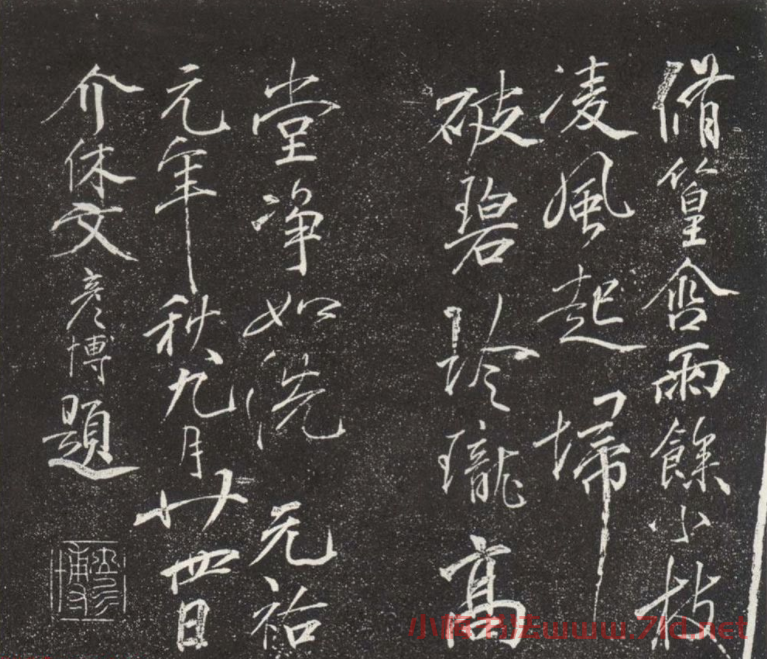 脩篁含雨餘小枝
凌風起埽
破碧玲瓏高
堂净如洗 元祐
元年秋九月廿四日
介休文彦博題
书法www.7ld.net